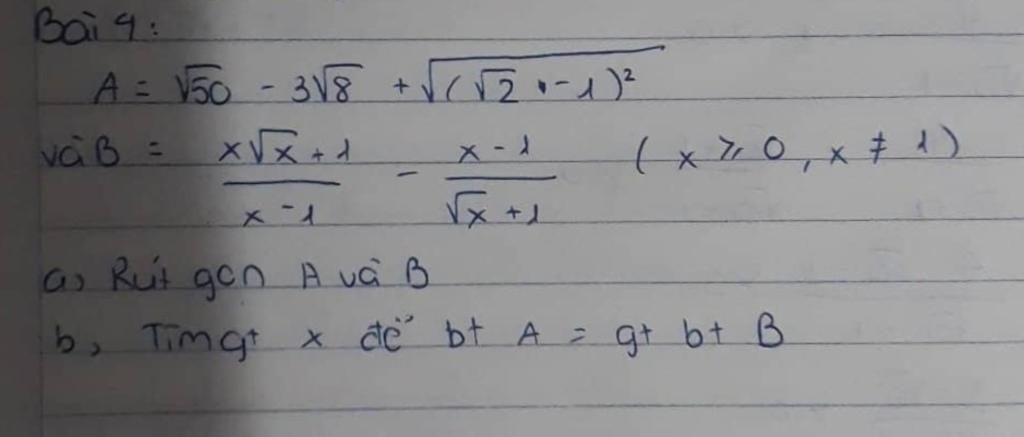 Bài 4:
A = √50 - 3√8 + √((√2 - 1)²)
và B = (x√x + 1)/(x - 1) - (x - 1)/(√x + 1) (x ⩾ 0, x ≠ 1)
a, Rút gọn A và B
b, Tìm gt x để bt A = gt bt B